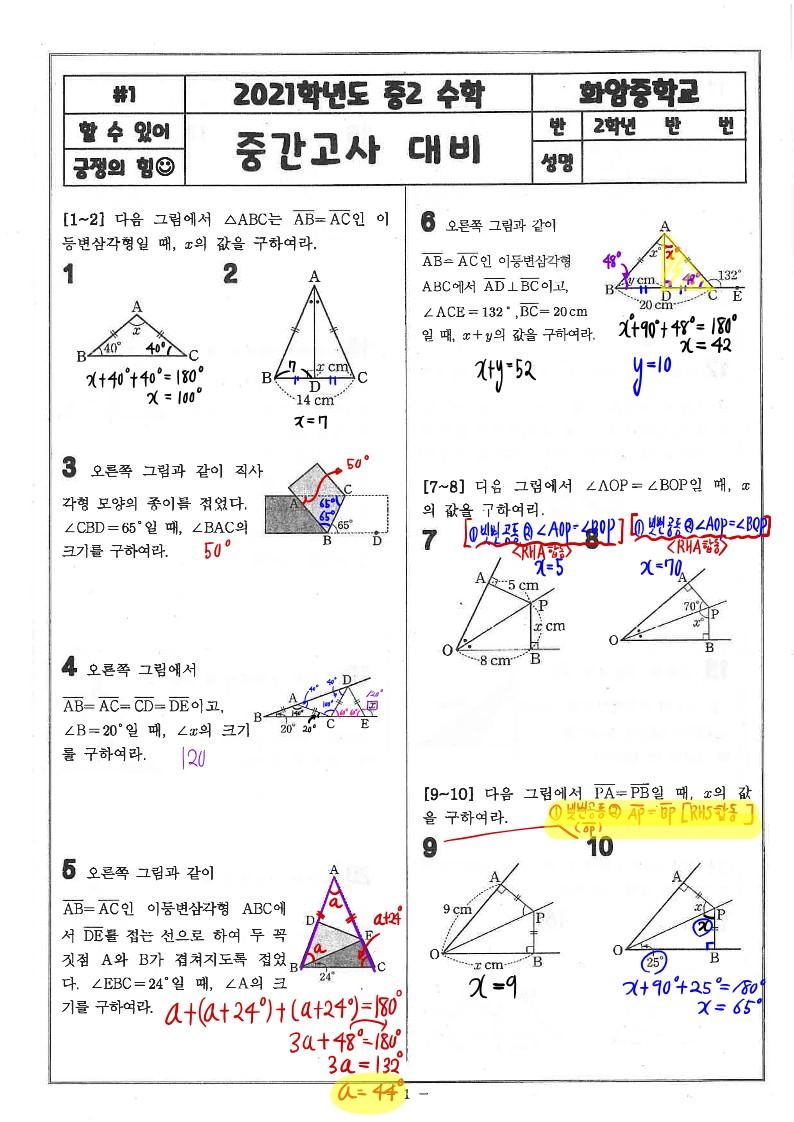 #1
2021학년도 중2 수학
화암중학교
할 수 있어
긍정의 힘☺
중간고사 대비
반
2학년 반 번
성명
[1~2] 다음 그림에서 △ABC는 AB=AC인 이
등변삼각형일 때, x의 값을 구하여라.
1
A
x
40°
40°
B
C
x+40°+40°=180°
x=100°
2
A
7
x cm
B
D
C
14 cm
x=7
3 오른쪽 그림과 같이 직사
각형 모양의 종이를 접었다.
∠CBD=65°일 때, ∠BAC의
크기를 구하여라.
50°
50°
A
C
65°
65°
65°
B
D
4 오른쪽 그림에서
AB=AC=CD=DE이고,
∠B=20°일 때, ∠x의 크기
를 구하여라.
120
D
40°
40°
A
140°
100°
120°
x
B
20°
20°
C
60°
60°
E
5 오른쪽 그림과 같이
AB=AC인 이등변삼각형 ABC에
서 DE를 접는 선으로 하여 두 꼭
짓점 A와 B가 겹쳐지도록 접었
다. ∠EBC=24°일 때, ∠A의 크
기를 구하여라.
A
a
D
E
a+24°
a
B
24°
C
a+(a+24°)+(a+24°)=180°
3a+48°=180°
3a=132°
a=44°
6 오른쪽 그림과 같이
AB=AC인 이등변삼각형
ABC에서 AD⊥BC이고,
∠ACE=132°, BC=20cm
일 때, x+y의 값을 구하여라.
A
x°
x°
48°
y cm
48°
132°
B
D
C
E
20 cm
x°+90°+48°=180°
x=42
x+y=52
y=10
[7~8] 다음 그림에서 ∠AOP=∠BOP일 때, x
의 값을 구하여라.
[① 빗변공통 ② ∠AOP=∠BOP]
<RHA합동>
[① 빗변공통 ② ∠AOP=∠BOP]
<RHA합동>
7
x=5
A
5 cm
P
x cm
O
8 cm
B
8
x=70
A
70°
P
x°
O
B
[9~10] 다음 그림에서 PA=PB일 때, x의 값
을 구하여라.
① 빗변공통 ② AP=BP [RHS합동]
(OP)
9
A
9 cm
P
O
x cm
B
x=9
10
A
x
P
x
O
25°
B
x+90°+25°=180°
x=65°
1 -